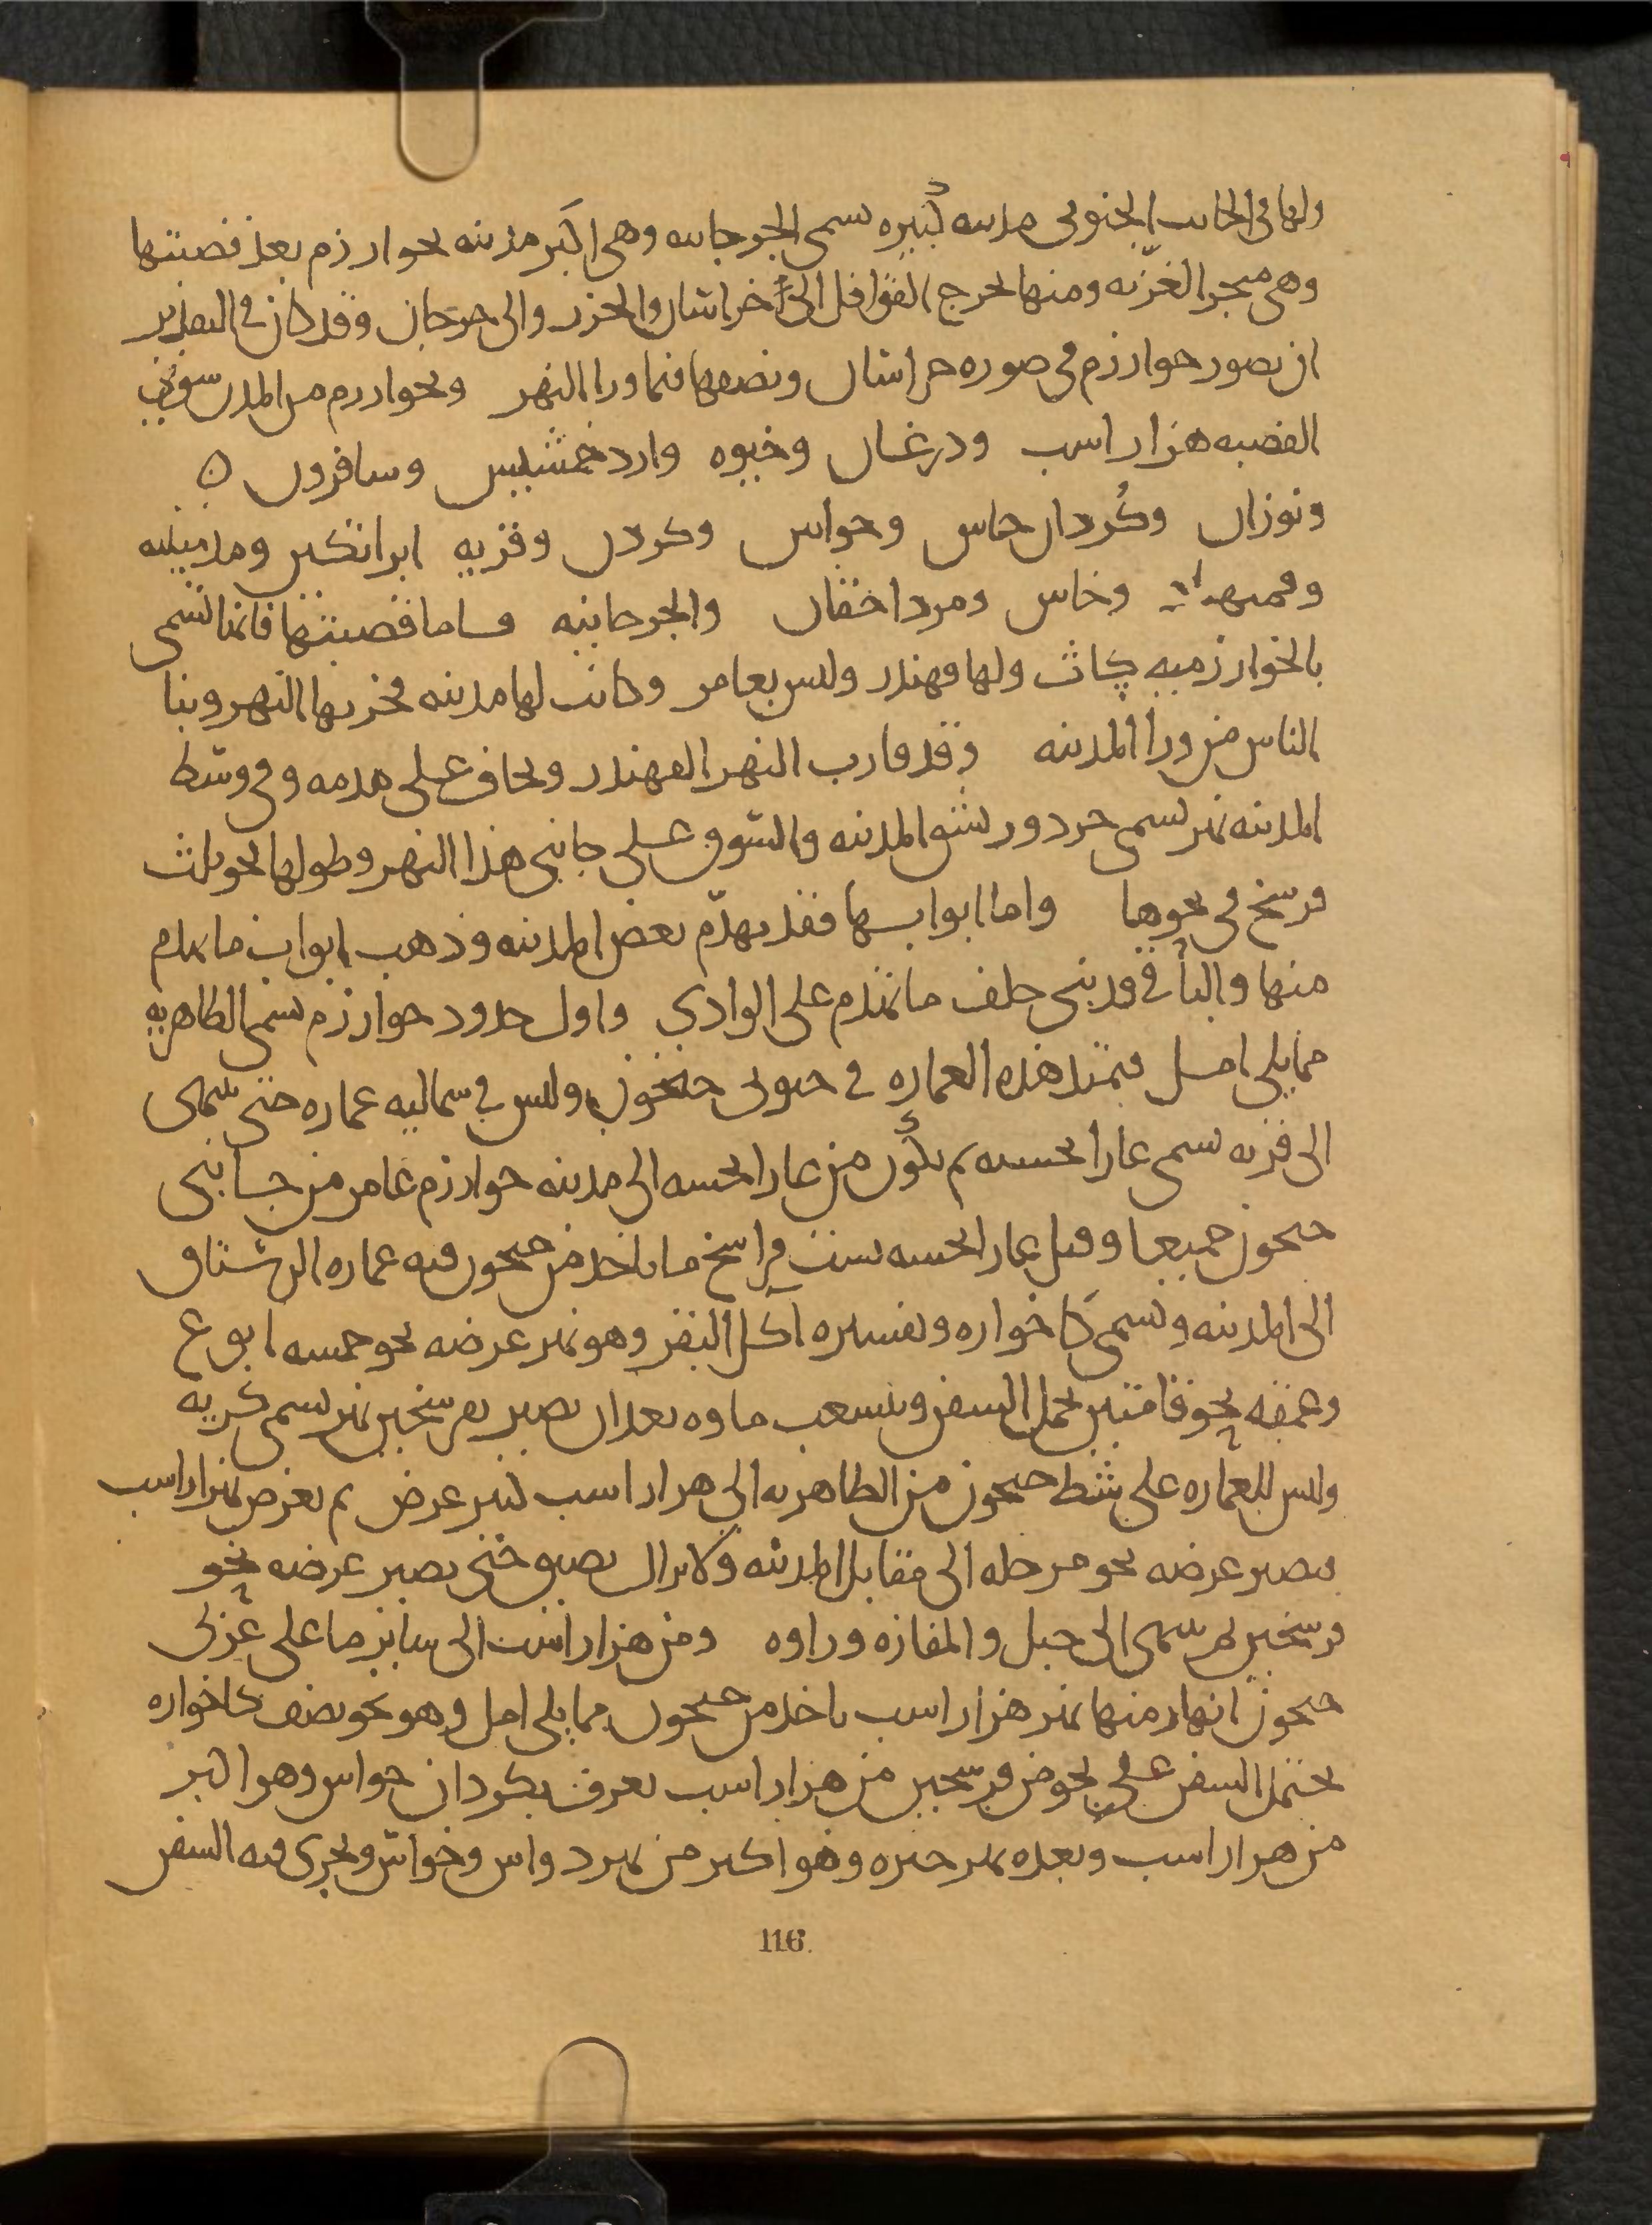 ولها في الجانب الجنوبي مدينه كبيره تسمى الجرجانيه وهي اكبر مدينه بخوارزم بعد قصبتها
وهي متجر الغزيه ومنها تخرج القوافل الى خراسان والخزر والى جرجان وقد كان في التقدير
ان نصور خوارزم في صوره خراسان ونصفها فيما ورا النهر وبخوارزم من المدن سوى
القصبه هزاراسب ودرغان وخيوه واردخشميثن وسافردن
ونوزان وكردان خاس وخواس وكردر وقريه براتكين ومدمينيه
وخاس ومرداخقان والجرجانيه فاما قصبتها فانها تسمى
بالخوارزميه كاث ولها قهندز وليس بعامر وكانت لها مدينه فخربها النهر وبنا
الناس من ورا المدينه وقد قارب النهر القهندز ويخاف على هدمه وفي وسط
المدينه نهر يسمى جردور يشق المدينه والسوق على جانبي هذا النهر وطولها نحو ثلث
فرسخ في نحوها واما ابوابها فقد تهدم بعض المدينه وذهب ابواب ما تهدم
منها والباقي قد بني خلف ما تهدم على الوادي واول حدود خوارزم تسمى الطاهريه
مما يلي امل فتمتد هذه العماره في جنوبي جيحون وليس في شماليه عماره حتى تنتهى
الى قريه تسمى غارابخشنه ثم يكون من غارابخشنه الى مدينه خوارزم عامر من جانبي
جيحون جميعا وقبل غارابخشنه بستت فراسخ ما ياخذ من جيحون فيه عماره الرستاق
الى المدينه ويسمى كاخواره وتفسيره اكل البقر وهو نهر عرضه نحو خمسه ابوع
وعمقه نحو قامتين يحمل السفن وينشعب ماوه بعد ان يصير فرسخين نهر يسمى كريه
وليس للعماره على شط جيحون من الطاهريه الى هزاراسب كبير عرض ثم يعرض بهزاراسب
فيصير عرضه نحو مرحله الى مقابل المدينه ولا يزال يضيق حتى يصير عرضه نحو
فرسخين ثم ينتهى الى جبل والمفازه وراوه ومن هزاراسب الى ساير ما على غربي
جيحون انهار منها نهر هزاراسب ياخذ من جيحون مما يلي امل وهو نحو نصف كاخواره
يحتمل السفن على نحو من فرسخين من هزاراسب يعرف بكردان خواس وهو اكبر
من هزاراسب وبعده نهر خيره وهو اكبر من نهر كردران خواس ويجري فيه السفن
116